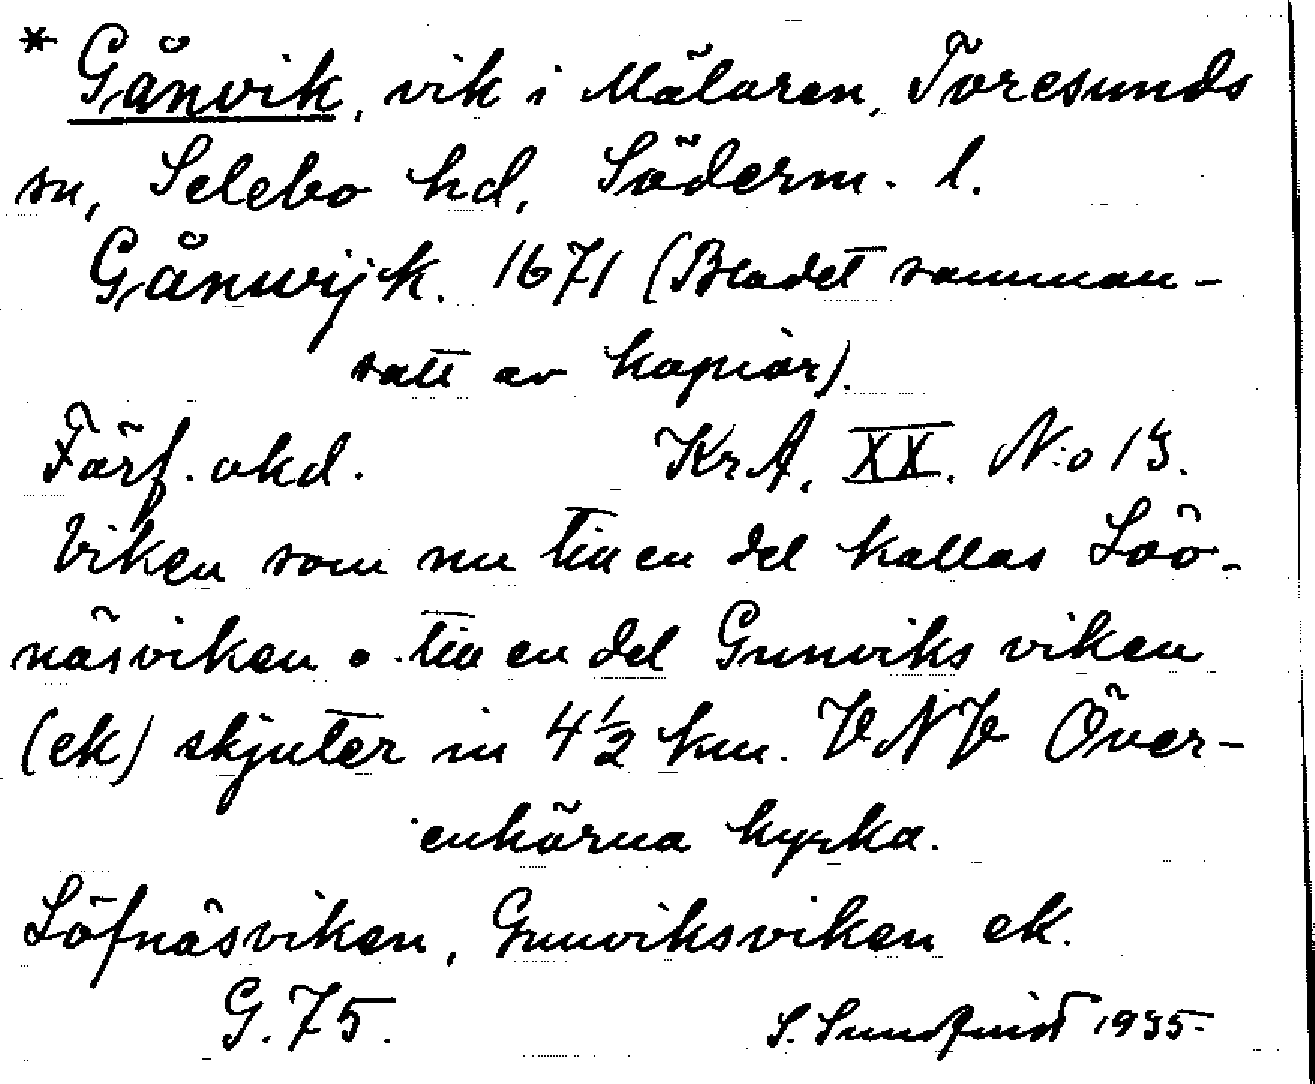 * Gånvik, vik i Mälaren, Toresunds
sn, Selebo hd, Söderm. l.
Gånwijk. 1671 (Bladet samman-
satt av kopior).
Förf. okd. KrA, XX. N:o 13.
Viken som nu till en del kallas Löv-
näsviken o. till en del Grunviks viken
(ek) skjuter in 4½ km. VNV Över-
enhörna kyrka.
Löfnäsviken, Grunviksviken ek.
G. 75. S. Sundqvist 1935